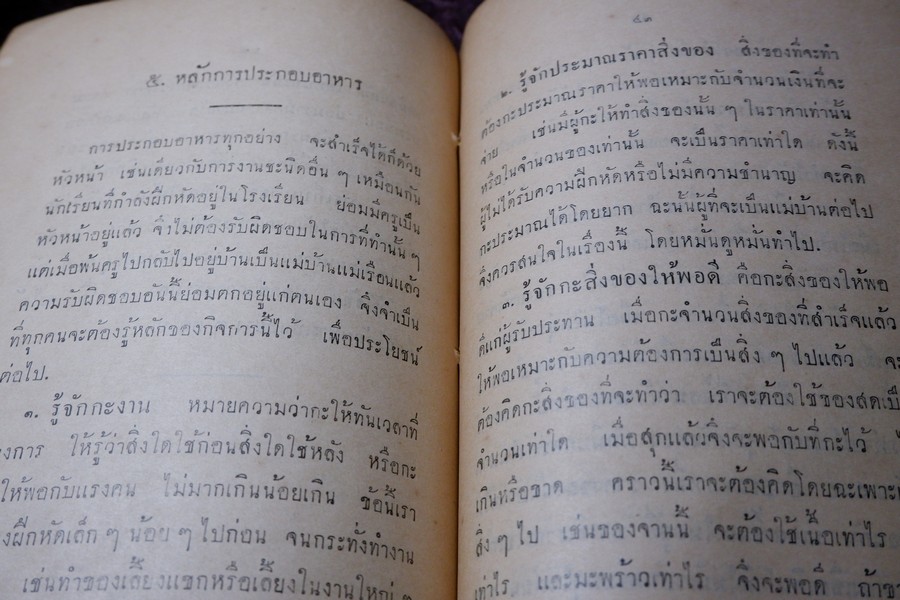 ๕. หลักการประกอบอาหาร
การประกอบอาหารทุกอย่าง จะสำเร็จได้ก็ด้วย
หัวหน้า เช่นเดียวกับการงานชะนิดอื่น ๆ เหมือนกัน
นักเรียนที่กำลังฝึกหัดอยู่ในโรงเรียน ย่อมมีครูเป็น
หัวหน้าอยู่แล้ว จึงไม่ต้องรับผิดชอบในการที่ทำนั้น ๆ
แต่เมื่อพ้นครูไปกลับไปอยู่บ้านเป็นแม่บ้านแม่เรือนแล้ว
ความรับผิดชอบอันนี้ย่อมตกอยู่แก่ตนเอง จึงจำเป็น
ที่ทุกคนจะต้องรู้หลักของกิจการนี้ไว้ เพื่อประโยชน์
ต่อไป.
๑. รู้จักกะงาน หมายความว่ากะให้ทันเวลาที่
งการ ให้รู้ว่าสิ่งใดใช้ก่อนสิ่งใดใช้หลัง หรือกะ
ให้พอกับแรงคน ไม่มากเกินน้อยเกิน ข้อนี้เรา
งฝึกหัดเล็ก ๆ น้อย ๆ ไปก่อน จนกระทั่งทำงาน
เช่นทำของเลี้ยงแขกหรือเลี้ยงในงานใหญ่ ๆ
๔๓
๒. รู้จักประมาณราคาสิ่งของ สิ่งของที่จะทำ
ต้องกะประมาณราคาให้พอเหมาะกับจำนวนเงินที่จะ
จ่าย เช่นมีผู้กะให้ทำสิ่งของนั้น ๆ ในราคาเท่านั้น
หรือในจำนวนของเท่านั้น จะเป็นราคาเท่าใด ดังนี้
ผู้ไม่ได้รับความฝึกหัดหรือไม่มีความชำนาญ จะคิด
กะประมาณได้โดยยาก ฉะนั้นผู้ที่จะเป็นแม่บ้านต่อไป
จึงควรสนใจในเรื่องนี้ โดยหมั่นดูหมั่นทำไป.
๓. รู้จักกะสิ่งของให้พอดี คือกะสิ่งของให้พอ
ดีแก่ผู้รับประทาน เมื่อกะจำนวนสิ่งของที่สำเร็จแล้ว
ให้พอเหมาะกับความต้องการเป็นสิ่ง ๆ ไปแล้ว จะ
ต้องคิดกะสิ่งของที่จะทำว่า เราจะต้องใช้ของสดเป็
จำนวนเท่าใด เมื่อสุกแล้วจึงจะพอกับที่กะไว้
เกินหรือขาด คราวนี้เราจะต้องคิดโดยฉะเพาะเ
สิ่ง ๆ ไป เช่นของจานนี้ จะต้องใช้เนื้อเท่าไร
เท่าไร และมะพร้าวเท่าไร จึงจะพอดี ถ้า